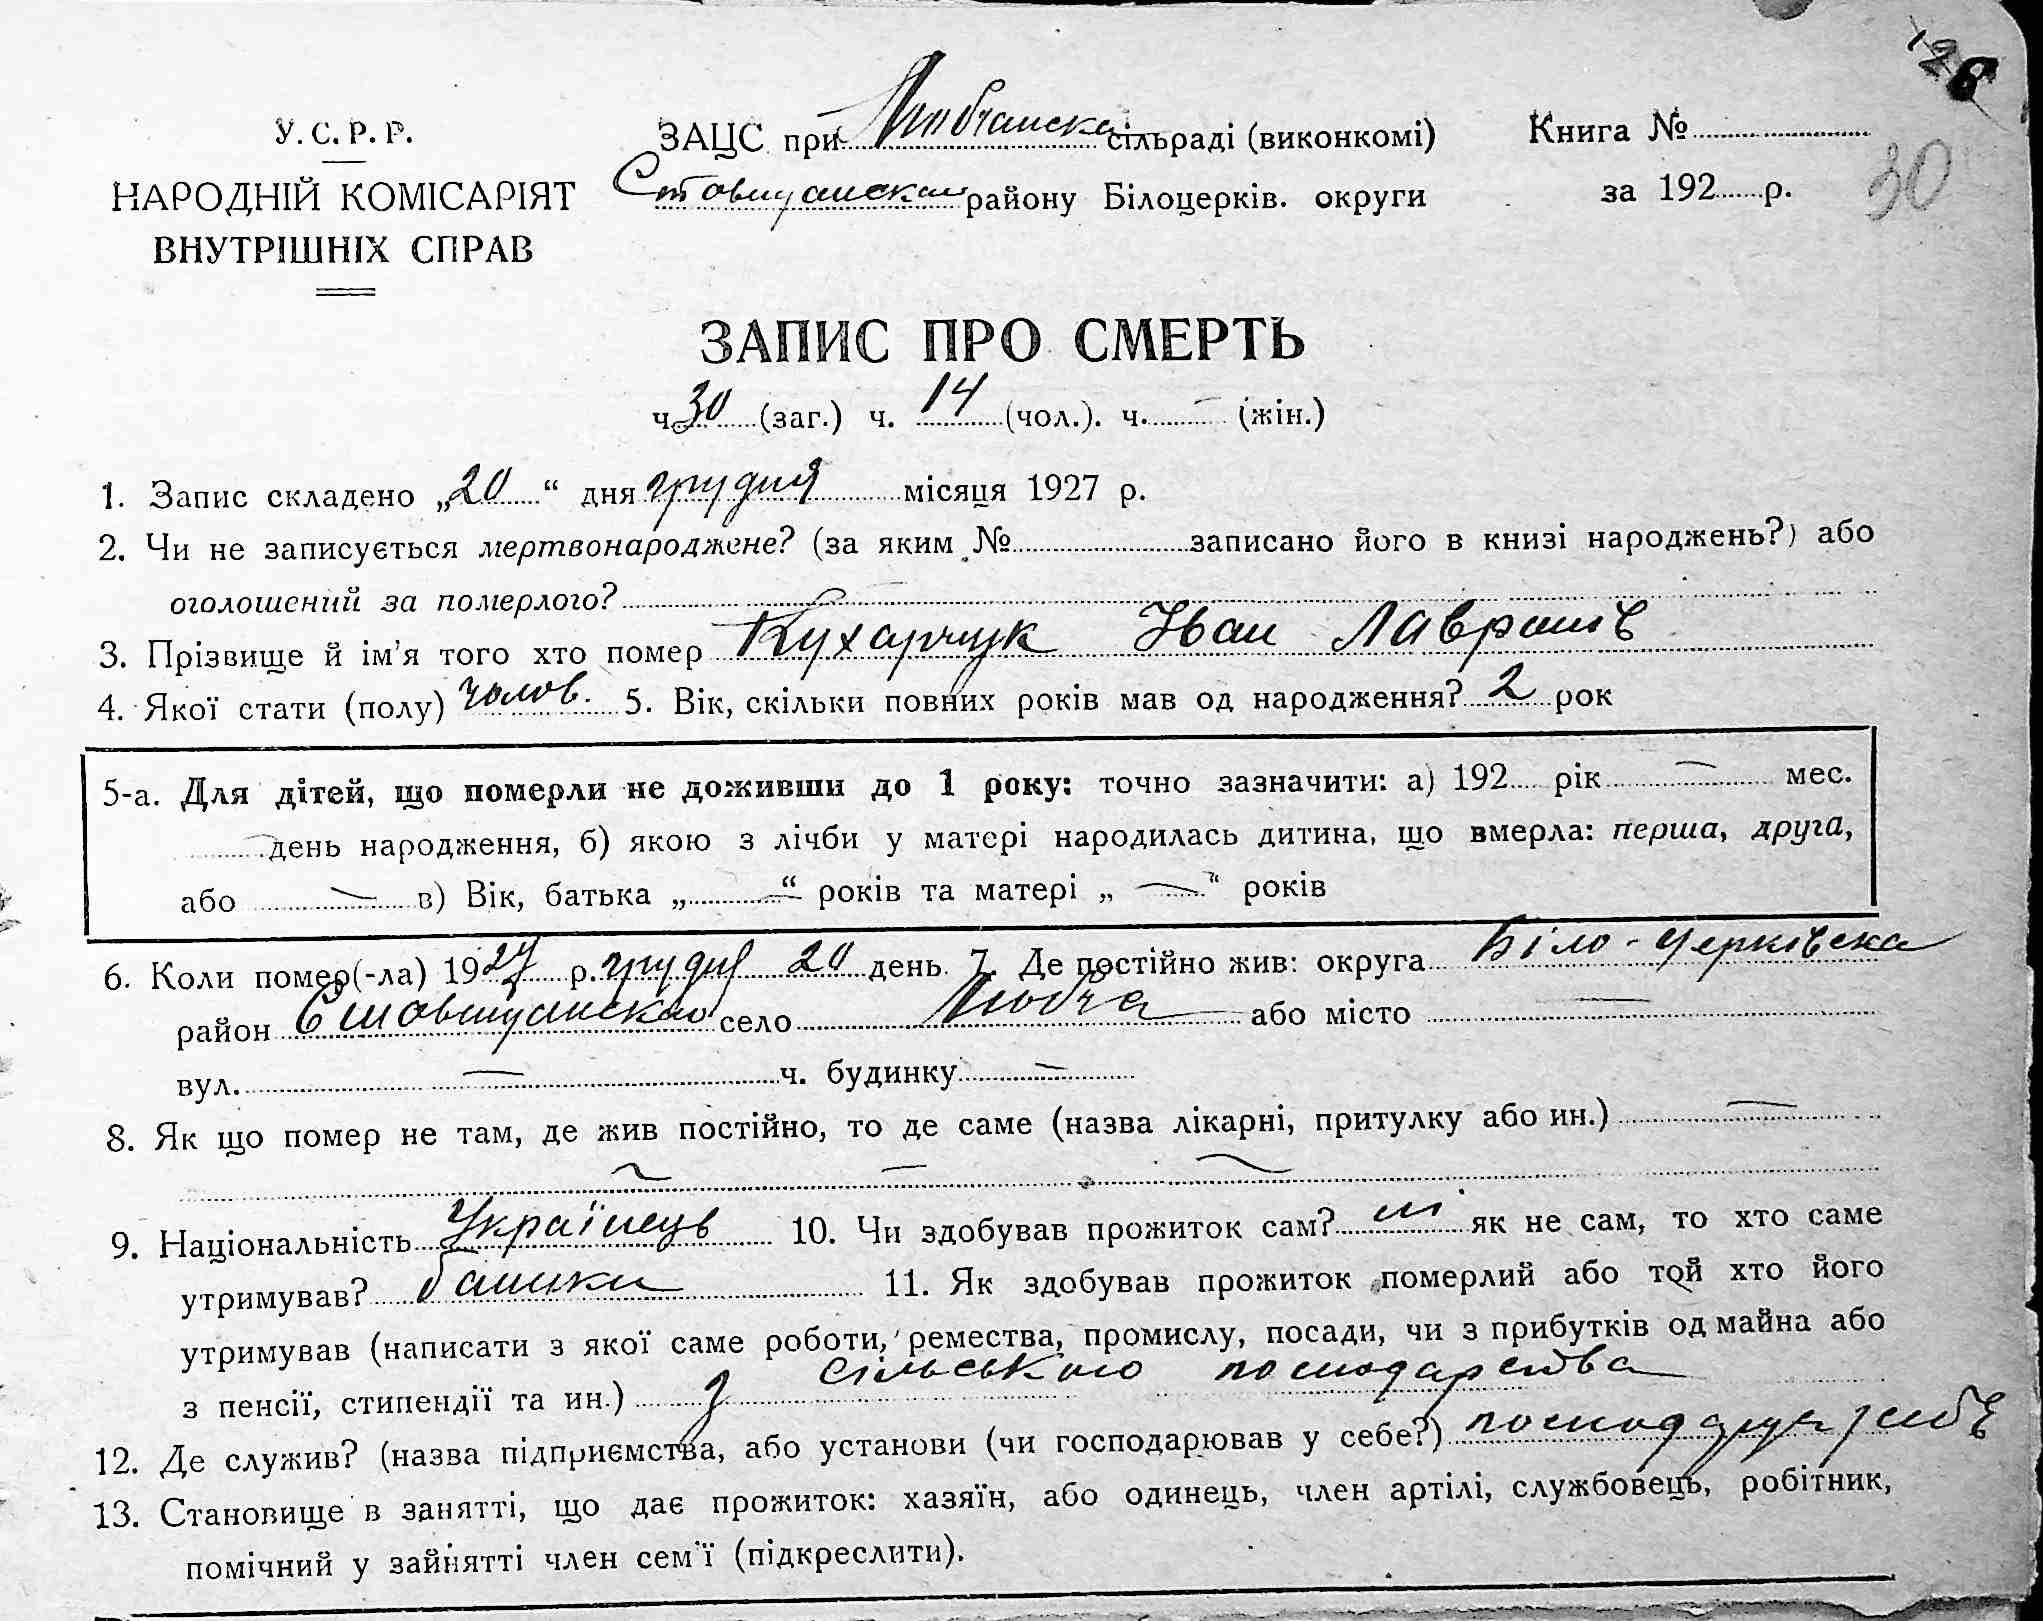 126
У. С. Р. Р.
НАРОДНІЙ КОМІСАРІЯТ
ВНУТРІШНІХ СПРАВ
ЗАЦС при Любчанска сільраді (виконкомі)
Ставищанском району Білоцерків. округи
Книга №
за 192 р.
30
ЗАПИС ПРО СМЕРТЬ
ч. 30 (заг.) ч. 14 (чол.). ч. — (жін.)
1. Запис складено „20“ дня грудня місяця 1927 р.
2. Чи не записується мертвонароджене? (за яким № записано його в книзі народжень?) або
оголошений за померлого?
3. Прізвище й ім’я того хто помер Кухарчук Іван Лавронів
4. Якої стати (полу) чолов. 5. Вік, скільки повних років мав од народження? 2 рок
5-а. Для дітей, що померли не доживши до 1 року: точно зазначити: а) 192 рік — мес.
— день народження, б) якою з лічби у матері народилась дитина, що вмерла: перша, друга,
або — в) Вік, батька „—“ років та матері „—“ років
6. Коли помер(-ла) 1927 р. грудня 20 день. 7. Де постійно жив: округа Біло-Черківска
район Ставищанском село Любча або місто —
вул. — ч. будинку —
8. Як що помер не там, де жив постійно, то де саме (назва лікарні, притулку або ин.) —
— — —
9. Національність Українець 10. Чи здобував прожиток сам? ні як не сам, то хто саме
утримував? батьки 11. Як здобував прожиток померлий або той хто його
утримував (написати з якої саме роботи, ремества, промислу, посади, чи з прибутків од майна або
з пенсії, стипендії та ин.) з сільського господарства
12. Де служив? (назва підприємства, або установи (чи господарював у себе?)
13. Становище в занятті, що дає прожиток: хазяїн, або одинець, член артілі, службовець, робітник,
помічний у зайнятті член сем'ї (підкреслити).